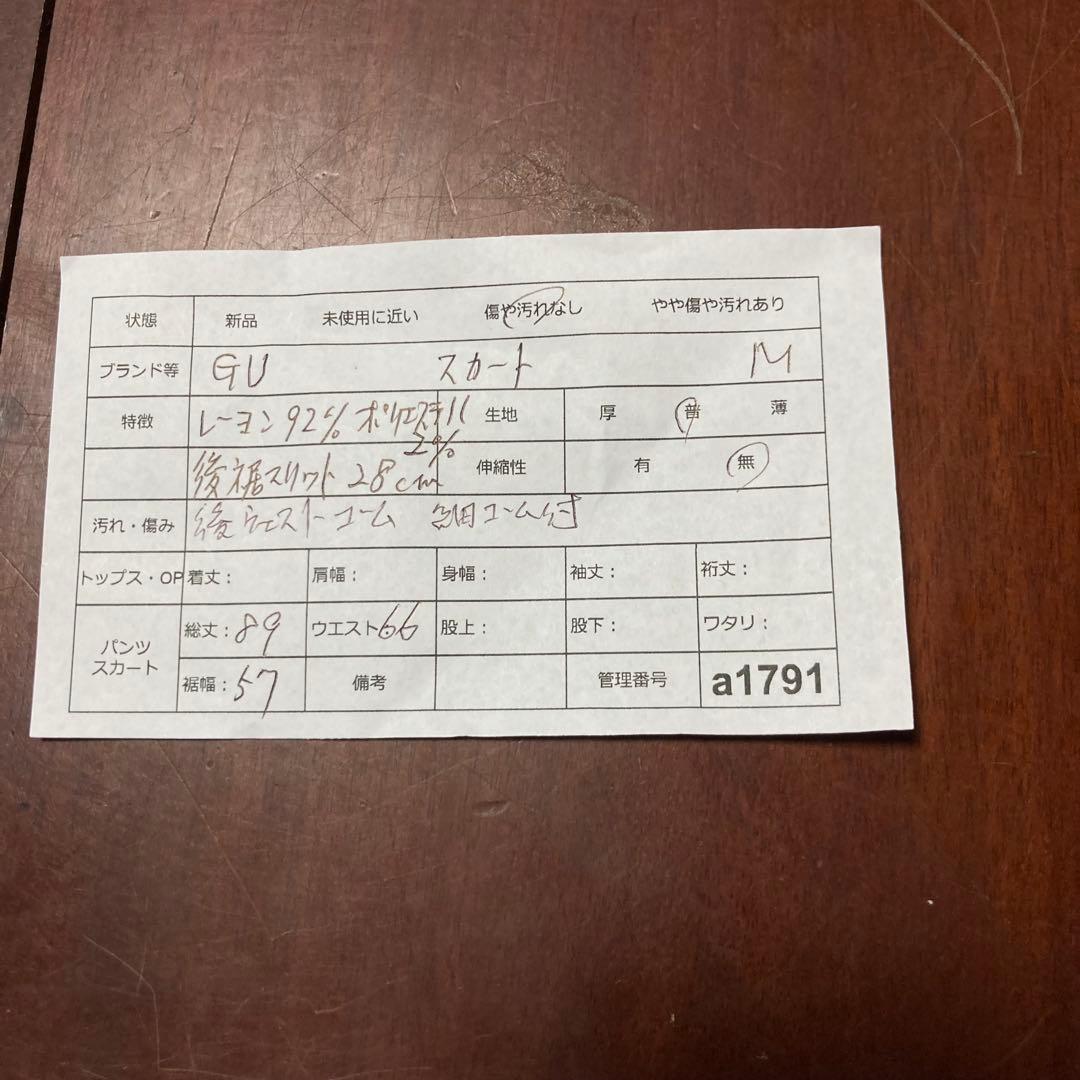 状態 新品 未使用に近い 傷や汚れなし やや傷や汚れあり
ブランド等 GU スカート M
特徴 レーヨン92% ポリエステル 生地 厚 普 薄
2%
後裾スリット 28cm 伸縮性 有 無
汚れ・傷み 後ウエストゴム 細ゴム付
トップス・OP 着丈： 肩幅： 身幅： 袖丈： 裄丈：
パンツ スカート 総丈：89 ウエスト66 股上： 股下： ワタリ：
裾幅：57 備考 管理番号 a1791